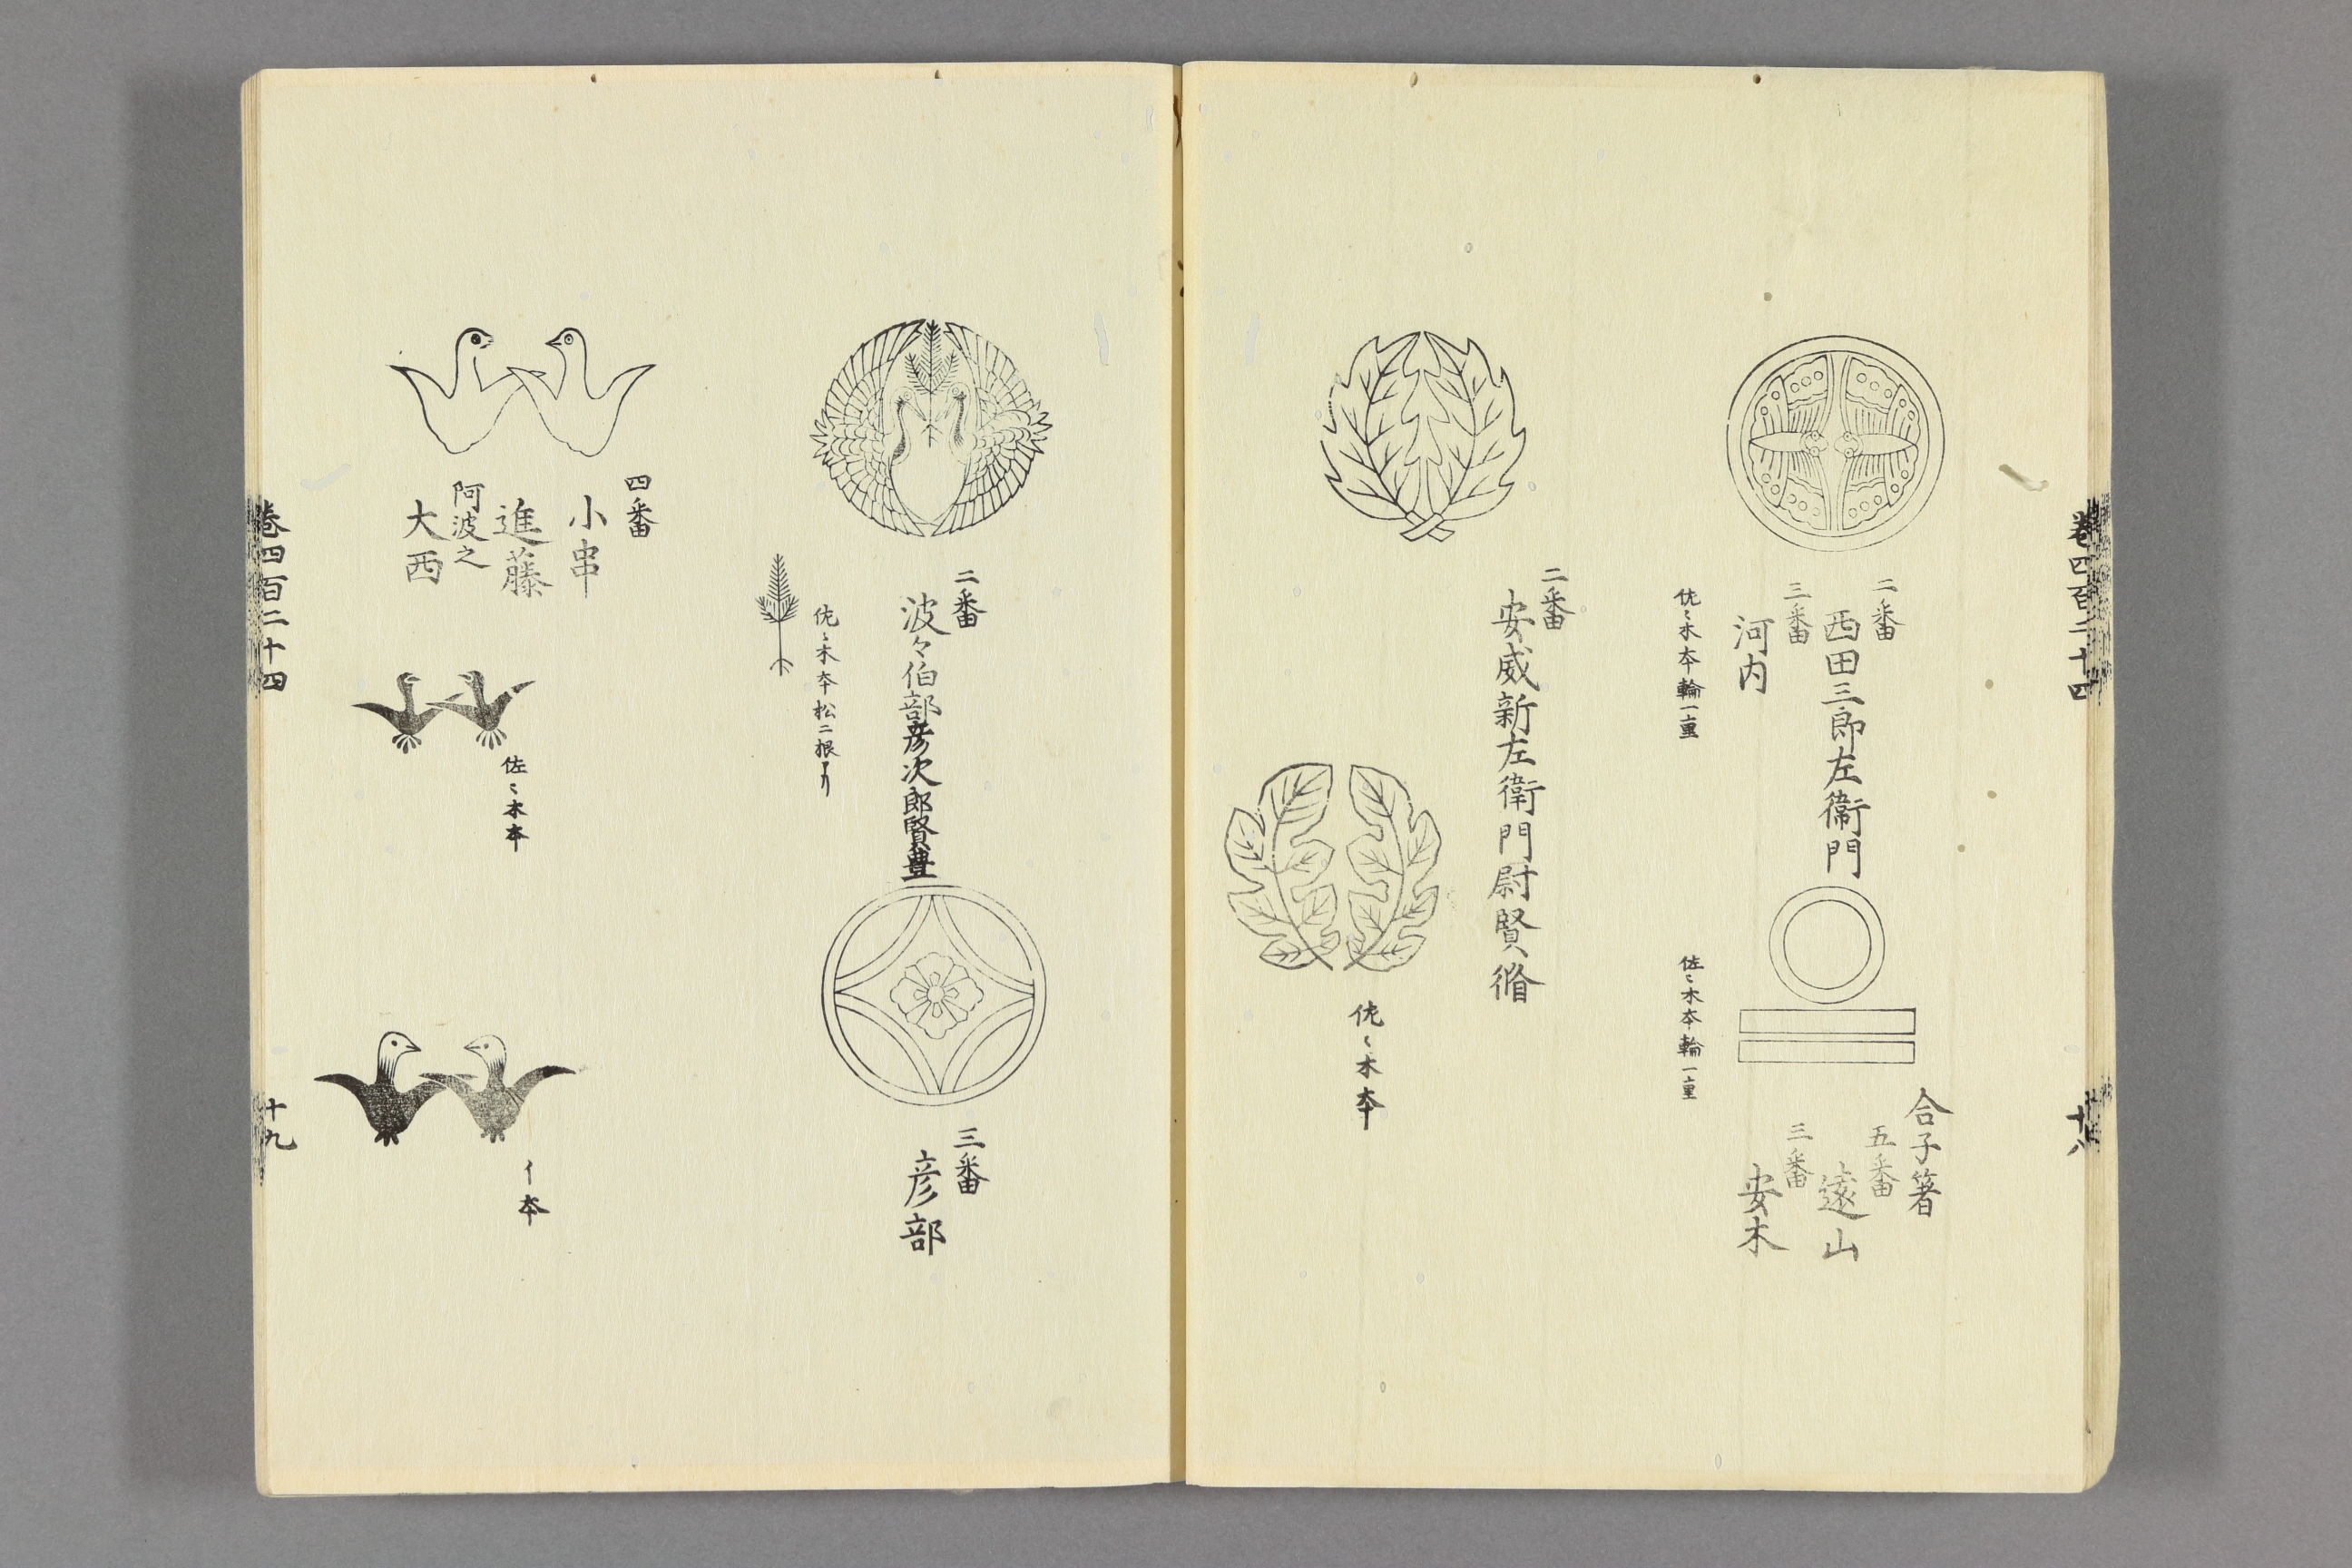 巻四百二十四
十八
二番
西田三郎左衞門
三番
河内
佐〻木本輪一重
合子箸
五番
遠山
三番
安木
佐〻木本輪一重
二番
安威新左衛門尉賢脩
佐〻木本
二番
波々伯部彦次郎賢豊
佐〻木本松二根アリ
三番
彦部
四番
小串
進藤
阿波之
大西
佐〻木本
イ本
巻四百二十四
十九